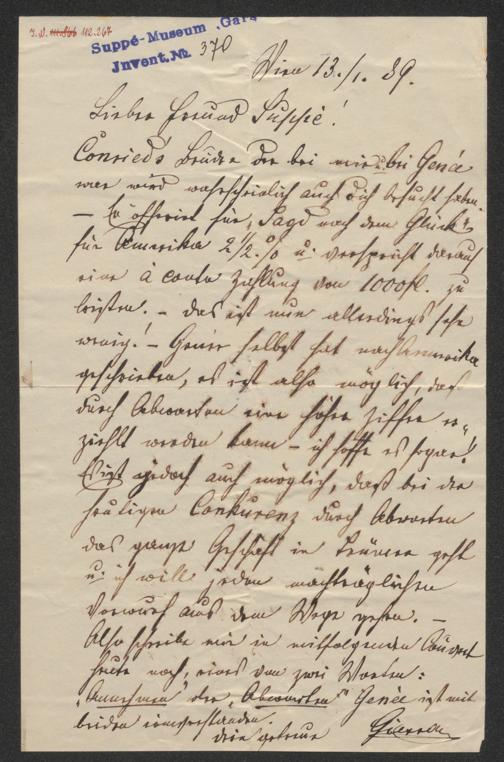 I.N. 112.267
Suppé-Museum Gars
Invent.№ 370
Wien 13./1. 89.
Lieber Freund Suppé!
Conried's Bruder der bei mir u. bei Genée
war wird wahrscheinlich auch dich besucht haben.
— Er offerirt für „Jagd nach dem Glück"
für Amerika 2½ % u. verspricht darauf
eine à conto Zahlung von 1000 fl. zu
leisten. — Das ist nun allerdings sehr
wenig! — Genée selbst hat nach Amerika
geschrieben, es ist also möglich, daß
durch Abwarten eine höhere Ziffer er-
zielt werden kann — ich hoffe es sogar!
Es ist jedoch auch möglich, daß bei der
heutigen Conkurenz durch Abwarten
das ganze Geschäft in Trümmer geht
u. ich will jeden nachträglichen
Vorwurf aus dem Wege gehen. —
Also schreibe mir in mitfolgendem Couvert
heute noch, eines von zwei Worten:
„Annehmen" oder „Abwarten" Genée ist mit
beiden einverstanden.
Dein getreuer